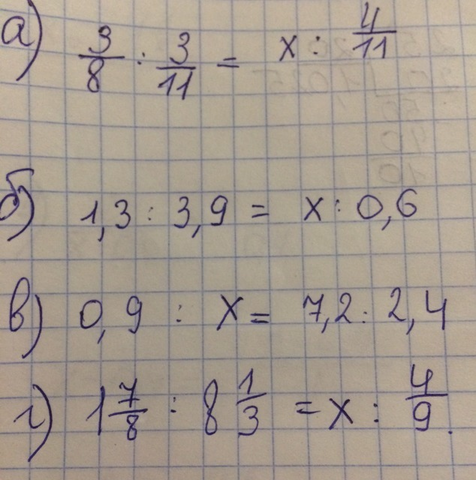 а) 3/8 : 3/11 = x : 4/11
б) 1,3 : 3,9 = x : 0,6
в) 0,9 : x = 7,2 : 2,4
г) 1 7/8 : 8 1/3 = x : 4/9.